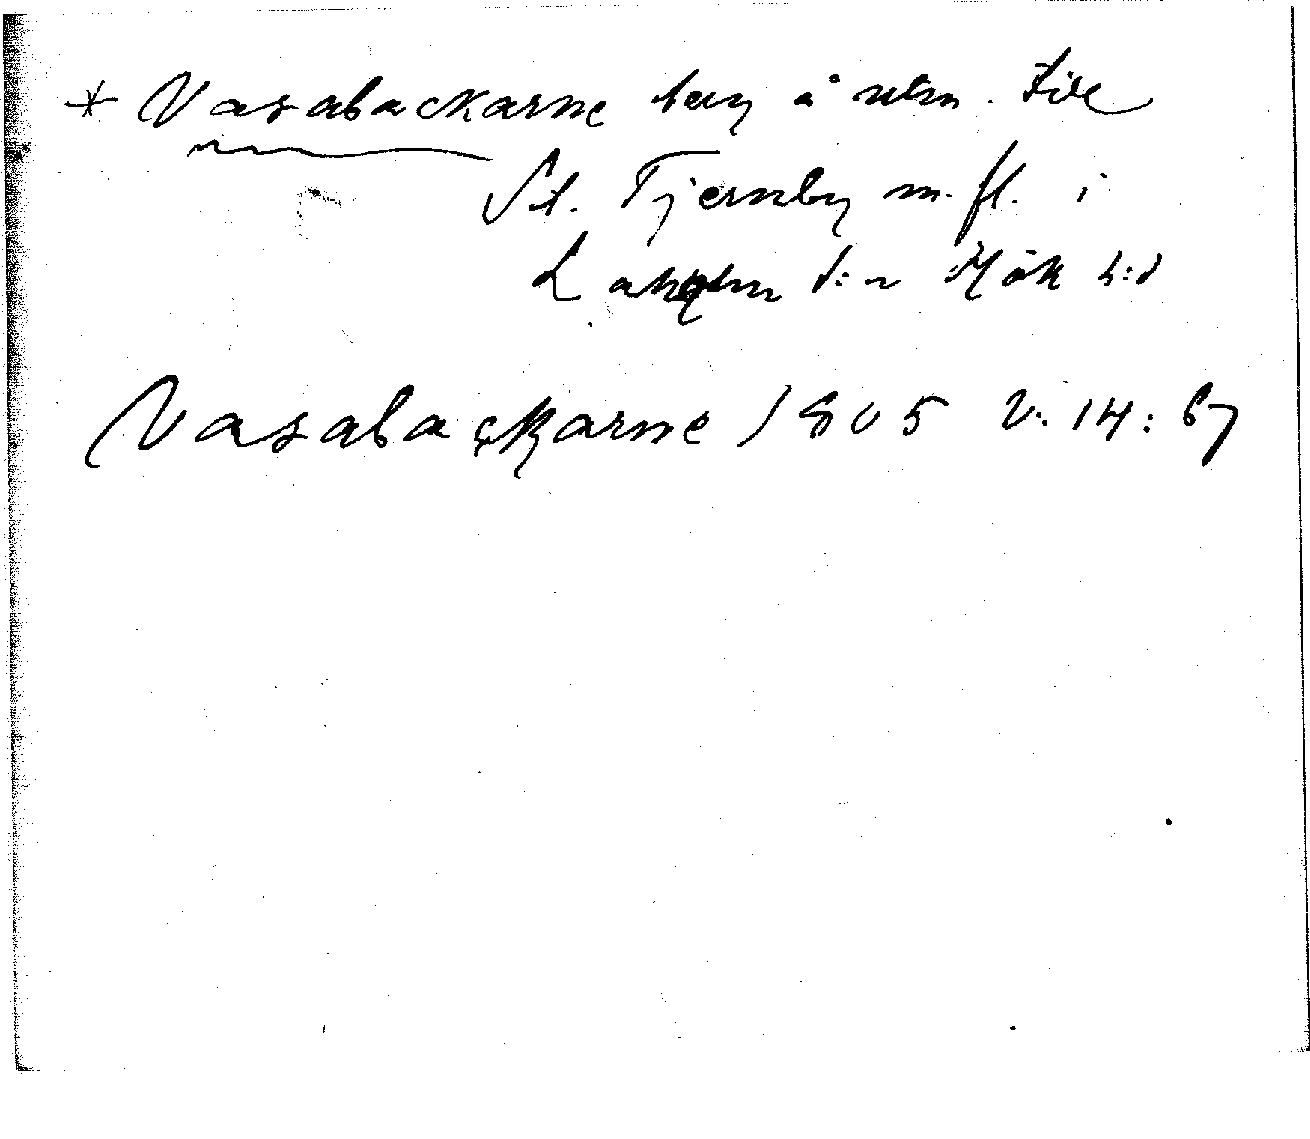 * Vasabackarne berg å utm. till
St. Tjernby m. fl. i
Laholm s:n Hök h:d
Vasabackarne 1805 V. 14: 67